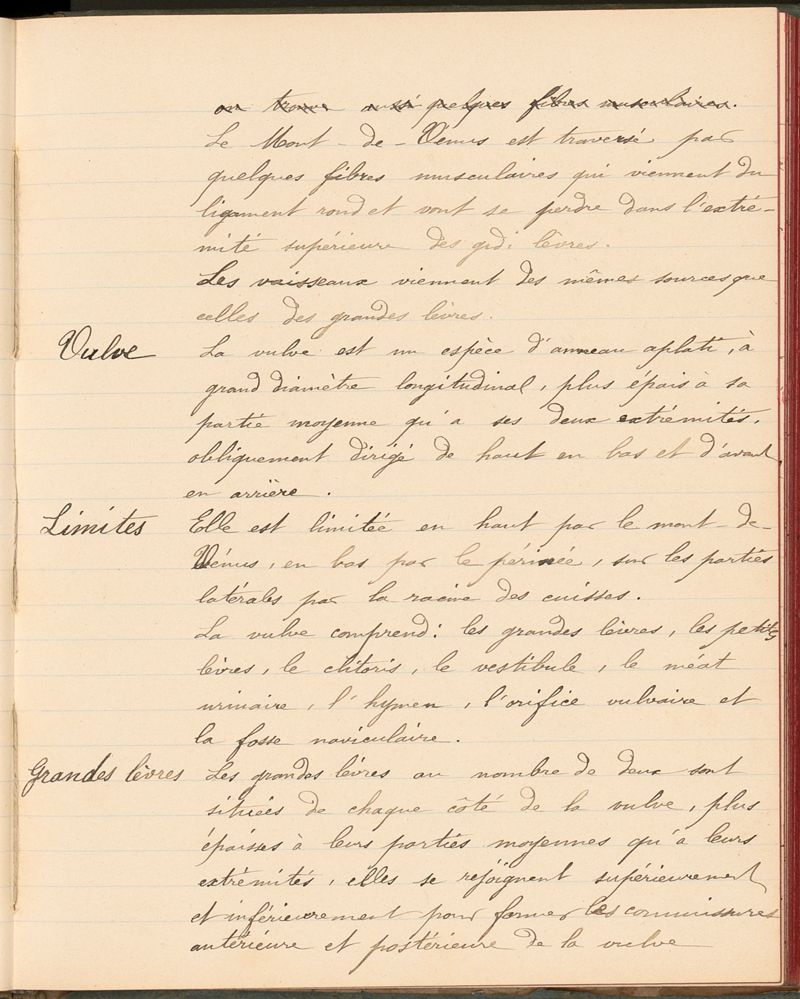 on trouve aussi quelques fibres musculaires.
Le Mont-de-Vénus est traversé par
quelques fibres musculaires qui viennent du
ligament rond et vont se perdre dans l'extré-
mité supérieure des gdes lèvres.
Les vaisseaux viennent des mêmes sources que
celles des grandes lèvres.
Vulve La vulve est un espèce d'anneau aplati, à
grand diamètre longitudinal, plus épais à sa
partie moyenne qu'a ses deux extrémités.
obliquement dirigé de haut en bas et d'avant
en arrière.
Limites Elle est limitée en haut par le mont-de-
Vénus, en bas par le périnée, sur les parties
latérales par la racine des cuisses.
La vulve comprend: les grandes lèvres, les petites
lèvres, le clitoris, le vestibule, le méat
urinaire, l'hymen, l'orifice vulvaire et
la fosse naviculaire.
Grandes lèvres Les grandes lèvres au nombre de deux sont
situées de chaque côté de la vulve, plus
épaisses à leurs parties moyennes qu'a leurs
extrémités, elles se rejoignent supérieurement
et inférieurement pour former les commissures
antérieure et postérieure de la vulve